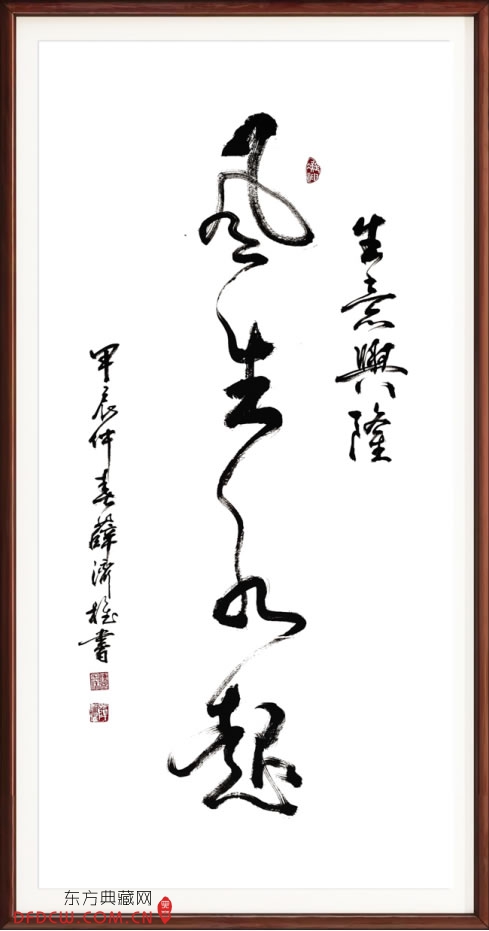 生意興隆
风生水起
甲辰仲春薛濟桂書
东方典藏网
DFDCW.COM.CN